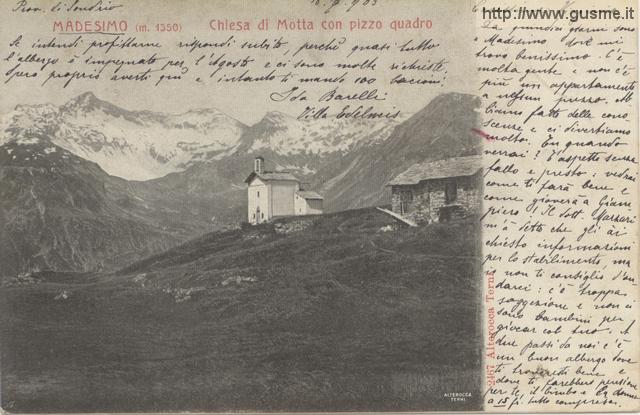 http://www.gusme.it
Prov. di Sondrio
MADESIMO (m. 1550) Chiesa di Motta con pizzo quadro
Se intendi profittarne rispondi subito, perché quasi tutto
l'albergo è impegnato per l'Agosto e ci sono molte richieste.
Spero proprio averti qui e intanto ti mando 100 baccioni
Ida Barelli
Villa Adelmis
giorni sono
a Madesimo dove mi
trovo benissimo. C'è
molta gente e non c'è
più un appartamento
a nessun prezzo. Ab
biamo fatto delle cono
scenze e ci divertiamo
molto. Tu quando
verrai? T'aspetto senza
fallo e presto: vedrai
come ti farà bene e
come gioverà a Giam
piero! Il dott.
m'à detto che gli ài
chiesto informazioni
per lo stabilimento, ma
io non ti consiglio d'an
darci: c'è troppa
soggezione e non ci
sono bambini per
giocar col tuo. A
due passi da noi c'è
un buon albergo dove
ti troveresti bene e
dove ti farebbero pensione
per te, il bimbo e la donna
a 15 fr. tutto compreso.
2467 Alterocca Terni
ALTEROCCA
TERNI